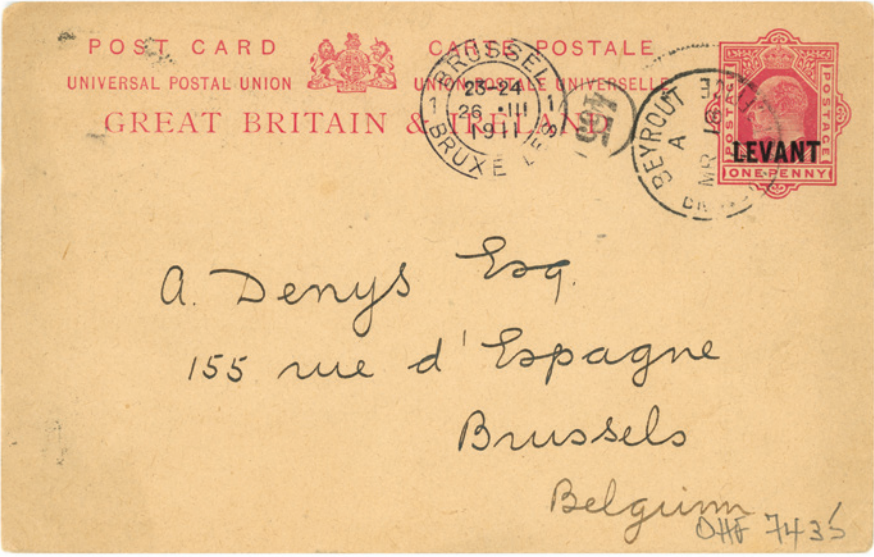 POST CARD CARTE POSTALE
UNIVERSAL POSTAL UNION UNION POSTALE UNIVERSELLE
GREAT BRITAIN & IRELAND
BRUSSEL
1 23-24 1
26 · III
1911
BRUXELLES
BEYROUT
A
MR
POSTAGE POSTAGE
LEVANT
ONE PENNY
A. Denys Esq.
155 rue d'Espagne
Brussels
Belgium